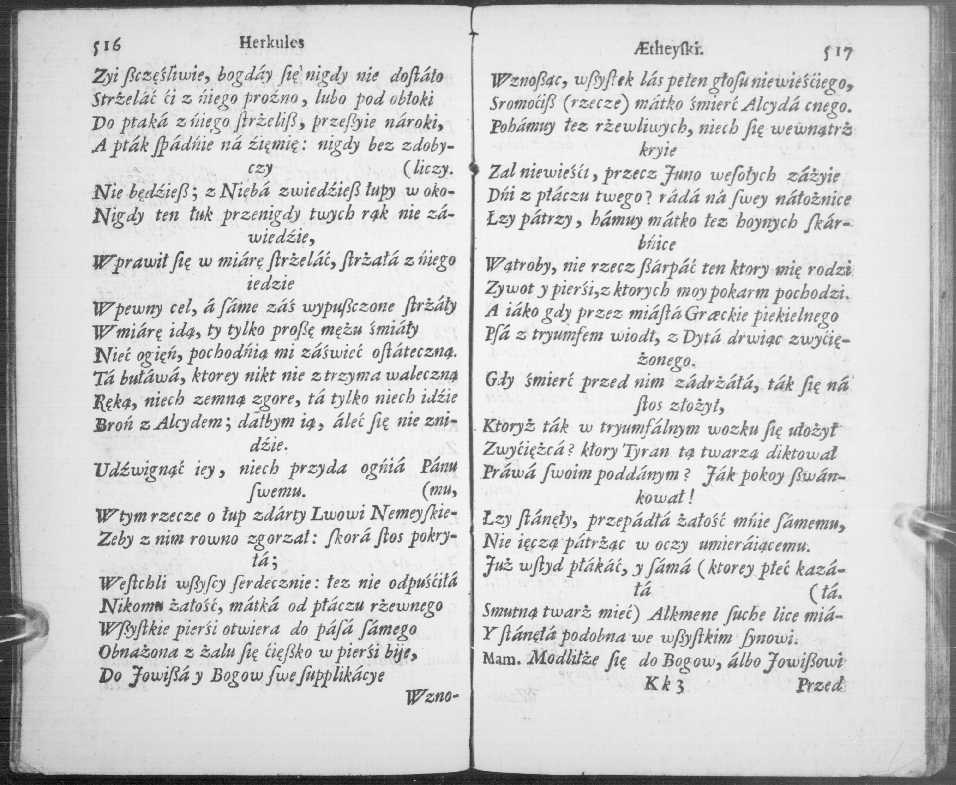 516 Herkules
Zyi ſzczęśliwie, bogdáy się nigdy nie doſtáło
Strżeláć ći z ńiego proźno, lubo pod obłoki
Do ptaká z ńiego ſtrżeliß, przeßyie nároki,
A pták ſpádńie ná źięmię: nigdy bez zdoby-
czy (liczy.
Nie będźieß; z Niebá zwiedźieß łupy w oko-
Nigdy ten łuk przenigdy twych rąk nie zá-
wiedźie,
Wprawił się w miárę ſtrżeláć, ſtrżałá z ńiego
iedzie
Wpewny cel, á ſáme záś wypußczone ſtrżáły
W miárę idą, ty tylko proßę mężu śmiáły
Nieć ogięń, pochodńią mi záświeć oſtáteczną.
Tá buławá, ktorey nikt nie ztrzyma waleczną
Ręką, niech zemną zgore, tá tylko niech idźie
Broń z Alcydem; dałbym ią, áleć się nie zni-
dźie.
Udźwignąć iey, niech przyda ogńiá Pánu
ſwemu. (mu,
W tym rzecze o łup zdárty Lwowi Nemeyſkie-
Zeby z nim rowno zgorzał: ſkorá ſtos pokry-
łá;
Weſtchli wßyſcy ſerdecznie: łez nie odpuśćiłá
Nikomu żałość, mátká od płáczu rżewnego
Wßyſtkie pierśi otwiera do pásá ſámego
Obnażona z żalu się ćięßko w pierśi bije,
Do Jowißá y Bogow ſwe ſupplikácye
Wzno-
Ætheyſki. 517
Wznoßąc, wßyſtek lás pełen głoſu niewieśćiego,
Sromoćiß (rzecze) mátko śmierć Alcydá cnego.
Pohámuy łez rżewliwych, niech się wewnątrż
kryie
Zal niewieśći, przecz Juno weſołych záżyie
Dńi z płáczu twego? rádá ná ſwey náłożnice
Łzy pátrzy, hámuy mátko łez hoynych ſkár-
bńice
Wątroby, nie rzecz ßárpáć ten ktory mię rodzi
Zywot y pierśi, z ktorych moy pokarm pochodzi.
A iáko gdy przez miáſtá Græckie piekielnego
Pſá z tryumfem wiodł, z Dytá drwiąc zwyćię-
żonego.
Gdy śmierć przed nim zádrżáłá, ták się ná
ſtos złożył,
Ktoryż ták w tryumfálnym wozku się ułożył
Zwyćiężcá? kłory Tyran tą twarzą diktował
Práwá ſwoim poddánym? Ják pokoy ßwán-
kował!
Łzy ſtánęły, przepádłá żałość mńie ſámemu,
Nie ięczą pátrżąc w oczy umieráiącemu.
Już wſtyd płákáć, y ſámá (ktorey płeć kazá-
łá (łá.
Smutną twarż mieć) Alkmene ſuche lice miá-
Y ſtánęłá podobna we wßyſtkim ſynowi.
Mam. Modliłże się do Bogow, álbo Jowißowi
Kk 3 Przed